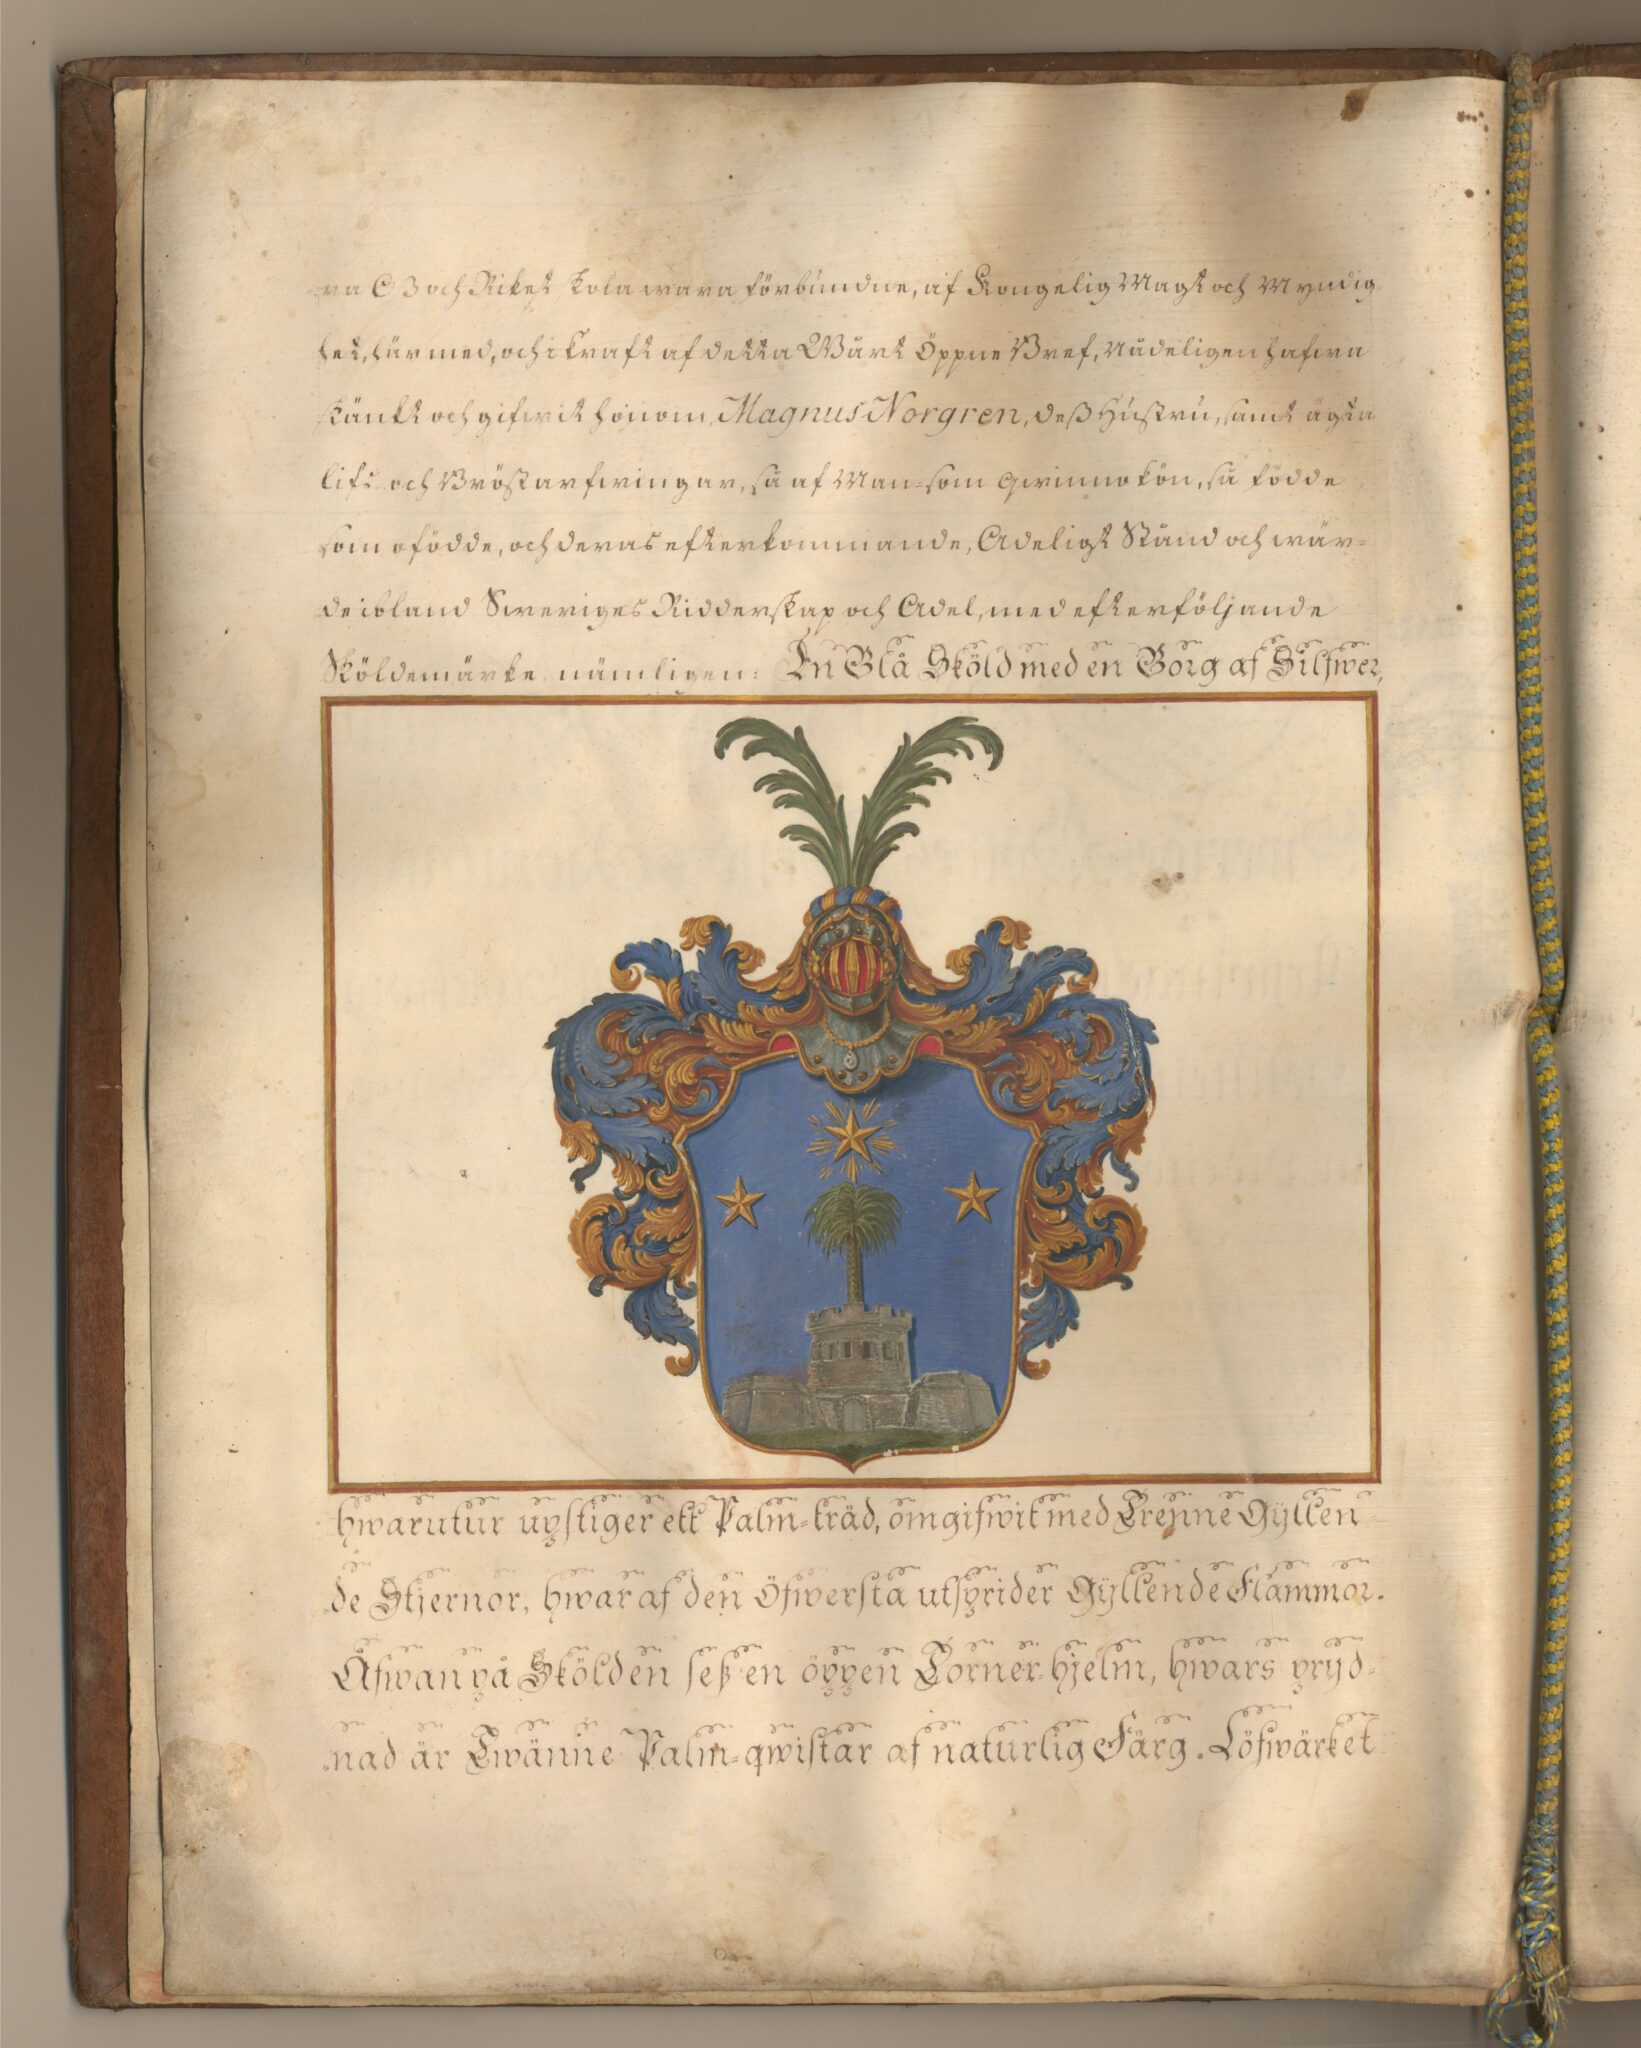 ra OSS och Riket skola wara förbundne, af Kongelig Magt och Myndig
het, härmed, och i kraft af detta Wårt Öppne Bref, Nådeligen hafwa
skänkt och gifwit honom, Magnus Norgren, deß Hustru, samt ägta
lifs- och Bröstarfwingar, så af Man- som Qwinnokön, så födde
som ofödde, och deras efterkommande, Adeligt Stånd och wär-
de ibland Sweriges Ridderskap och Adel, med efterföljande
Sköldemärke nämligen: En Blå Sköld med en Borg af Silfwer,
hwarutur upstiger ett Palm-träd, omgifwit med Trenne Gyllen-
de Stjernor, hwaraf den Öfwersta utsprider Gyllende Flammor.
Åfwanpå Skölden seß en öppen Torner-hjelm, hwars pryd-
nad är Twänne Palm-qwistar af naturlig Färg. Löfwärket